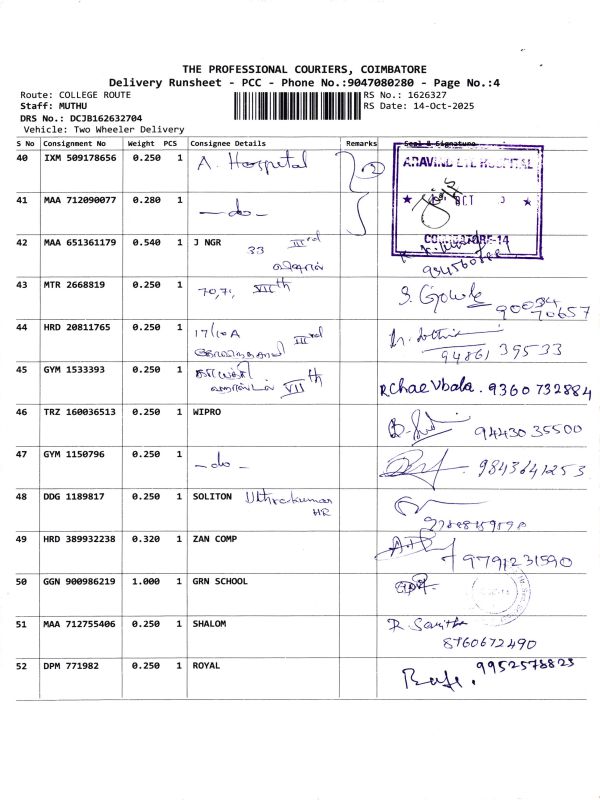 THE PROFESSIONAL COURIERS, COIMBATORE
Delivery Runsheet - PCC - Phone No.:9047080280 - Page No.:4
Route: COLLEGE ROUTE RS No.: 1626327
Staff: MUTHU RS Date: 14-Oct-2025
DRS No.: DCJB162632704
Vehicle: Two Wheeler Delivery
S No Consignment No Weight PCS Consignee Details Remarks Seal & Signature
40 IXM 509178656 0.250 1 A. Hospital 2 ARAVIND EYE HOSPITAL
41 MAA 712090077 0.280 1 -do- OCT
COIMBATORE-14
42 MAA 651361179 0.540 1 J NGR 33 IIIrd
43 MTR 2668819 0.250 1 70,71, VIIth S. Gowk 90034
70657
44 HRD 20811765 0.250 1 17/10A IIIrd
94861 39533
45 GYM 1533393 0.250 1 VIIth 9360 732884
46 TRZ 160036513 0.250 1 WIPRO 94430 35500
47 GYM 1150796 0.250 1 -do- 9843641253
48 DDG 1189817 0.250 1 SOLITON Uthrakumar
HR
49 HRD 389932238 0.320 1 ZAN COMP
9791231590
50 GGN 900986219 1.000 1 GRN SCHOOL
51 MAA 712755406 0.250 1 SHALOM R Savitha
8760672490
52 DPM 771982 0.250 1 ROYAL 9952578823